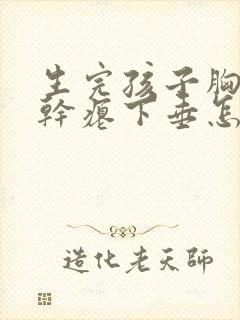 生完孩子胸
幹瘪下垂怎
造化老天師